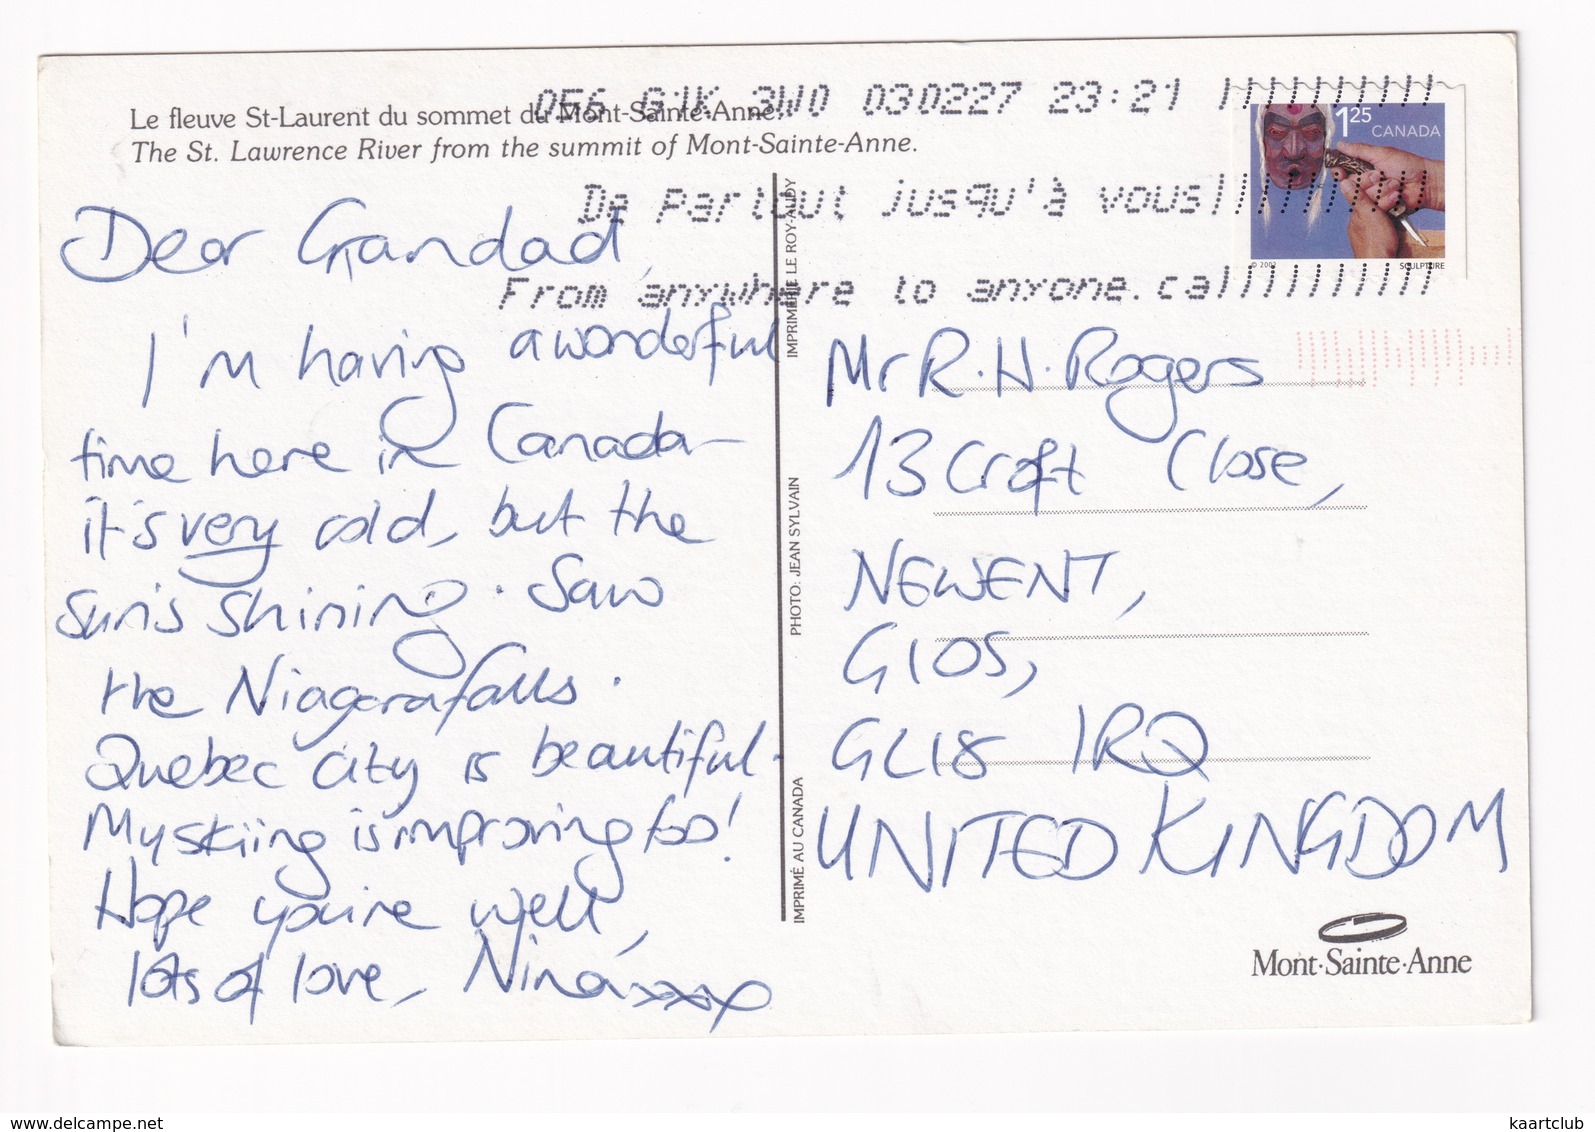 Le fleuve St-Laurent du sommet du Mont-Sainte-Anne.
The St. Lawrence River from the summit of Mont-Sainte-Anne.
056 G1K 3W0 030227 23:21
De partout jusqu'à vous
From anywhere to anyone.ca
125 CANADA
© 2002 SCULPTURE
Dear Grandad,
I'm having a wonderful
time here in Canada -
it's very cold, but the
sun's shining. Saw
the Niagara falls.
Quebec city is beautiful.
My skiing is improving too!
Hope you're well,
lots of love, Nina xxxx
IMPRIMERIE LE ROY-AUDY
PHOTO: JEAN SYLVAIN
IMPRIMÉ AU CANADA
Mr R. H. Rogers
13 Croft Close,
NEWENT,
GLOS,
GL18 1RQ
UNITED KINGDOM
Mont·Sainte·Anne
www.delcampe.net
kaartclub